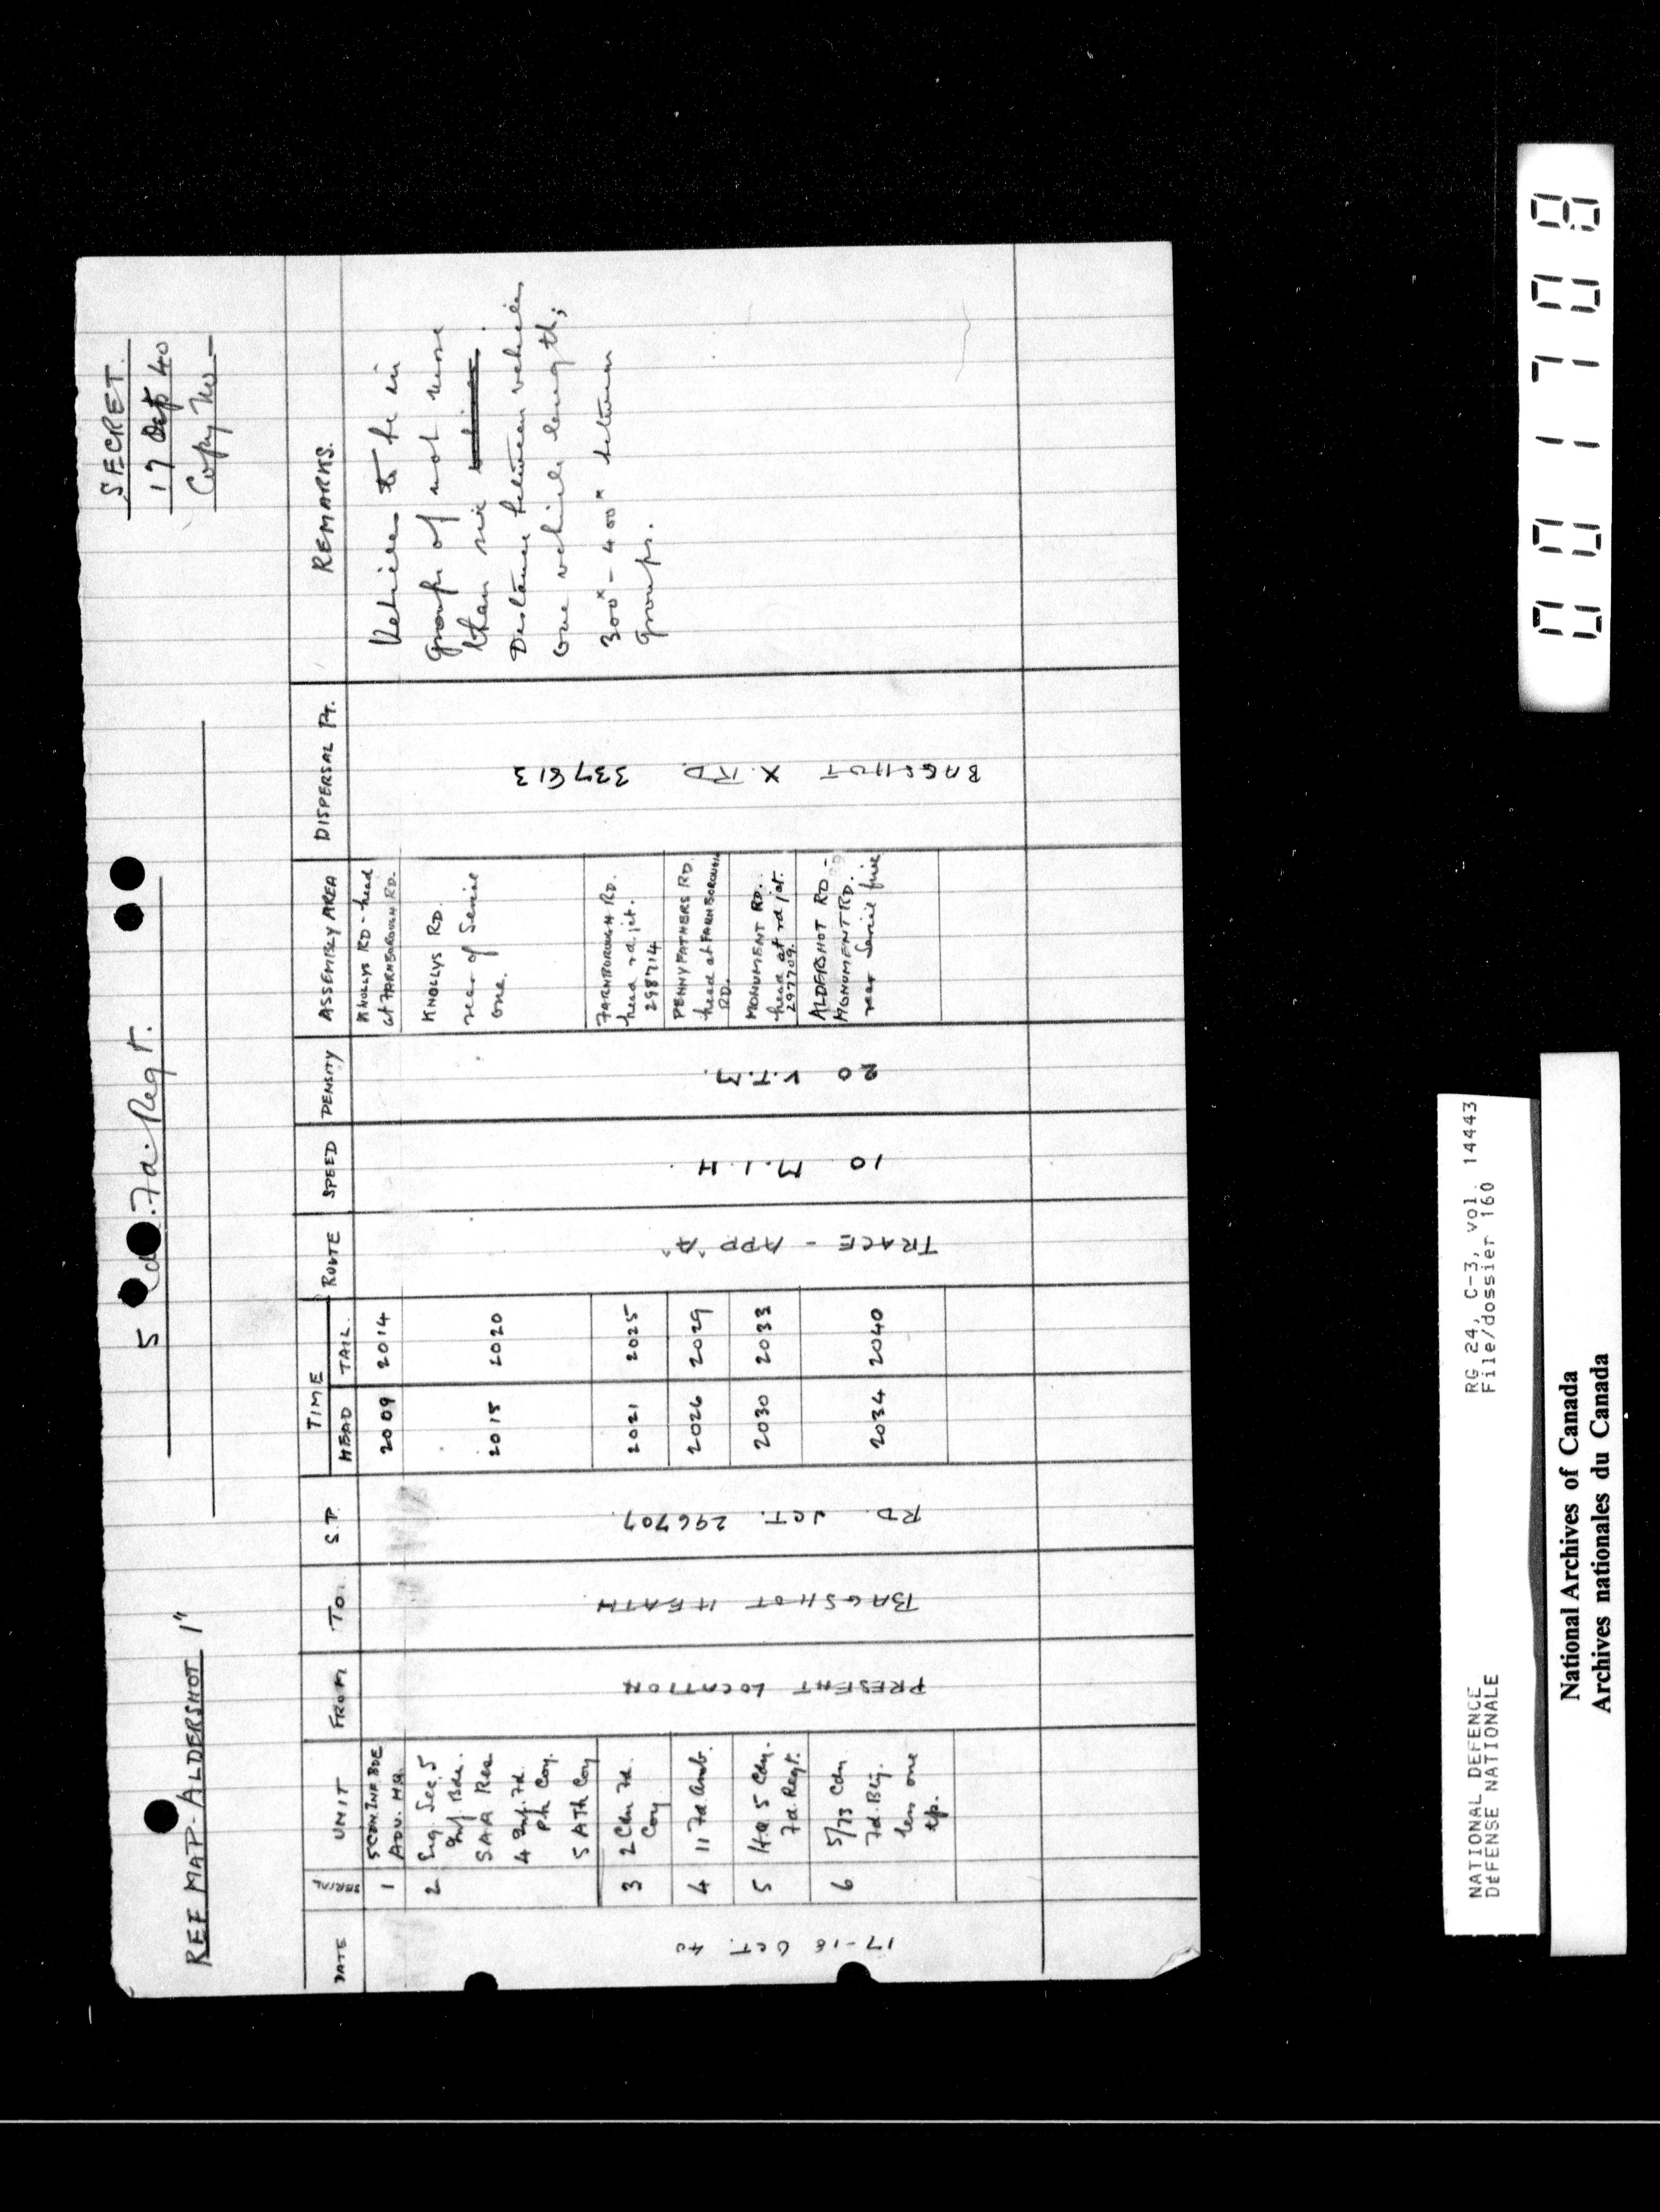 SECRET.
17 Oct 40
Copy No —
5 Cdn. Fd. Regt.
REF MAP - ALDERSHOT 1"
DATE SERIAL UNIT FROM TO S.P. TIME ROUTE SPEED DENSITY ASSEMBLY AREA DISPERSAL PT. REMARKS.
HEAD TAIL.
17-18 OCT. 40
PRESENT LOCATION
BAGSHOT HEATH
RD. JCT. 296707
TRACE - APP "A"
10 M.I.H.
20 V.T.M.
BAGSHOT X. RD. 337613
1 5 CDN. INF. BDE
ADV. HQ.
2009 2014
KNOLLYS RD - head
at FARNBOROUGH RD.
2 Sig. Sec. 5
Inf. Bde.
SAA Res
4 Inf. Fd.
Pk Coy.
5 ATk Coy
2015 2020
KNOLLYS RD.
rear of Serial
one.
3 2 Cdn Fd.
Coy
2021 2025
FARNBOROUGH RD.
head rd. jct.
298714
4 11 Fd. Amb.
2026 2029
PENNYFATHERS RD.
head at FARNBOROUGH
RD.
5 H.Q. 5 Cdn.
Fd. Regt.
2030 2033
MONUMENT RD.
head at rd jct.
297709.
6 5/73 Cdn
Fd. Bty.
less one
tp.
2034 2040
ALDERSHOT RD -
MONUMENT RD.
rear Serial five
Vehicles to be in
groups of not more
than six vehicles.
Distance between vehicles
one vehicle length;
300ˣ - 400ˣ between
groups.
0017009
NATIONAL DEFENCE RG 24, C-3, vol. 14443
DÉFENSE NATIONALE File/dossier 160
National Archives of Canada
Archives nationales du Canada